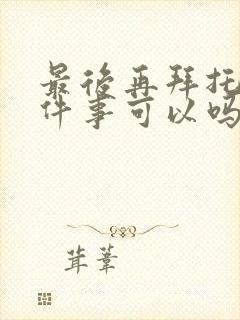 最后再拜托
件事可以吗
茸苇